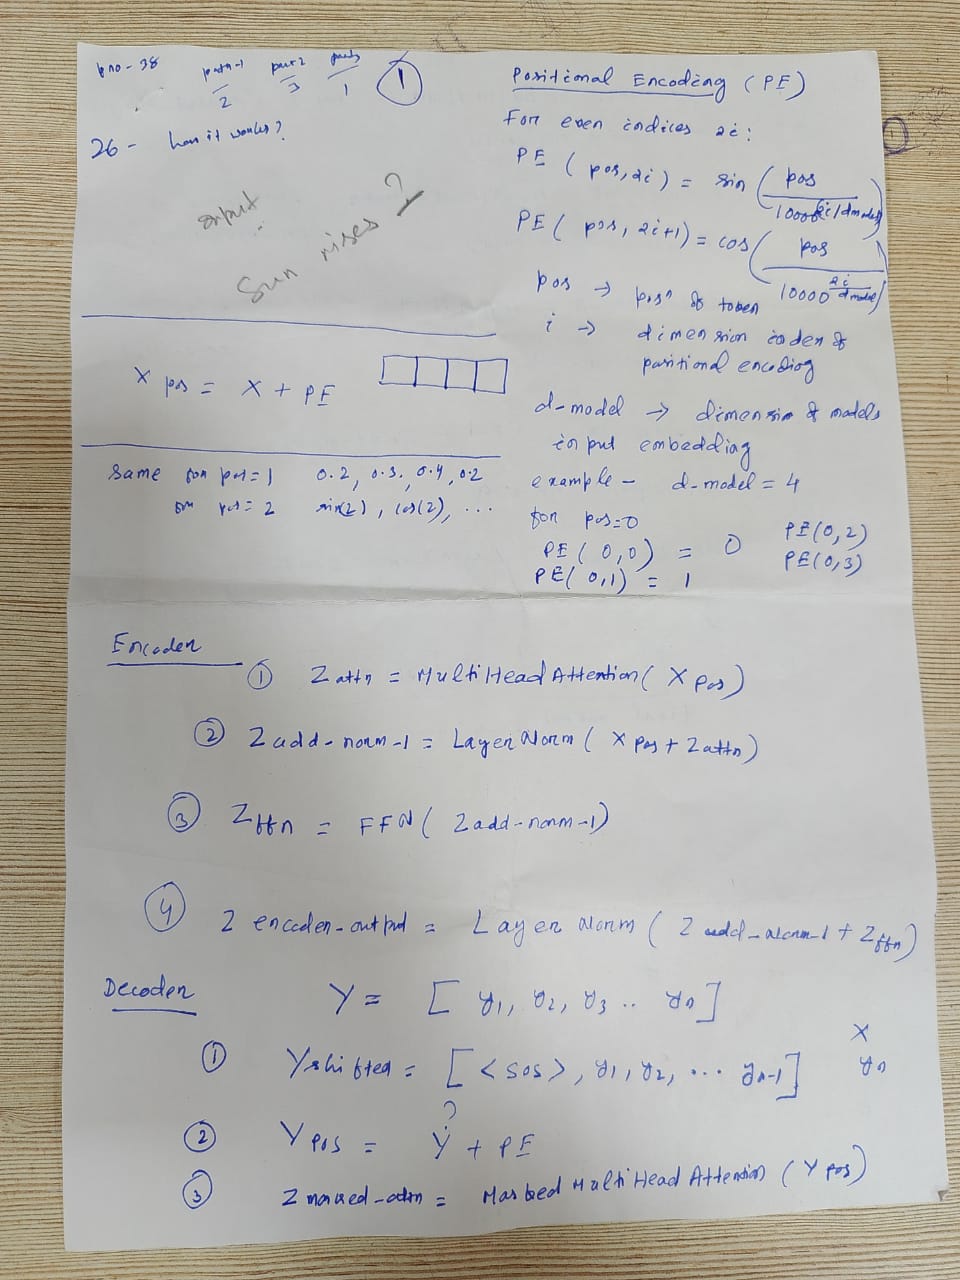 pno-38
part-1 part2 part3 1
2 3 1
26 - how it works?
input
Sun rises ?
X pos = X + PE
same for pos=1 0.2, 0.3, 0.4, 0.2
for pos=2 sin(2), cos(2), ...
Positional Encoding (PE)
For even indices 2i:
PE (pos,2i) = sin (pos / 10000^(2i/dmodel))
PE (pos, 2i+1) = cos (pos / 10000^(2i/dmodel))
pos → posn of token
i → dimension index of
positional encoding
d-model → dimension of models
input embedding
example - d-model = 4
for pos=0
PE (0,0) = 0 PE(0,2)
PE(0,1) = 1 PE(0,3)
Encoder
① Z attn = MultiHeadAttention (X pos)
② Z add-norm-1 = LayerNorm (X pos + Z attn)
③ Z ffn = FFN (Z add-norm-1)
④ Z encoder-output = LayerNorm (Z add-norm-1 + Z ffn)
Decoder Y = [y1, y2, y3 .. yn]
X
① Y shifted = [<sos>, y1, y2, ... yn-1] yn
?
② Y pos = Y + PE
③ Z masked-attn = Masked MultiHead Attention (Y pos)